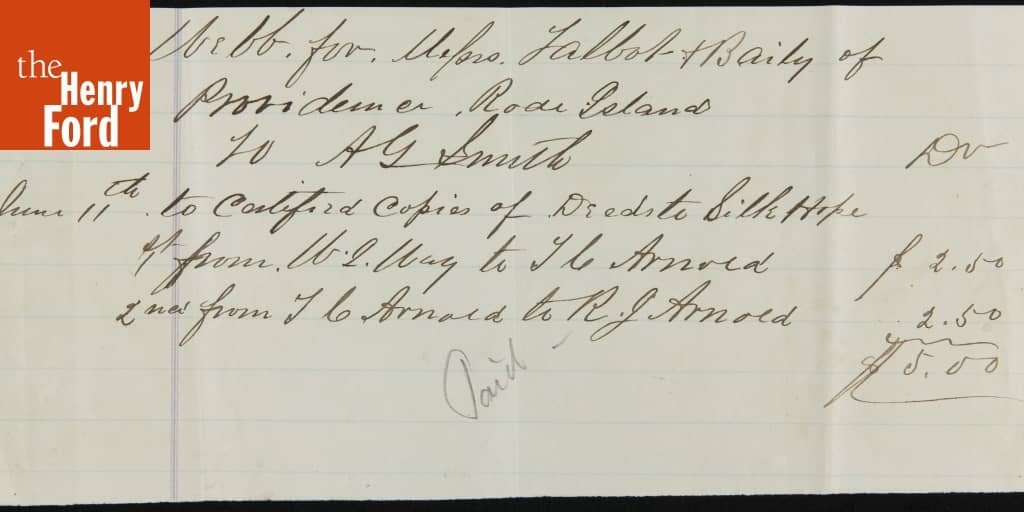 the
Henry
Ford
Webb. for. Messrs. Talbot & Baily of
Providence, Rode Island
To A G Smith Dr
June 11th to Certified Copies of Deeds to Silk Hope
1st from. W. I. Way to T C Arnold $ 2.50
2nd from T C Arnold to R. J Arnold 2.50
$ 5.00
Paid